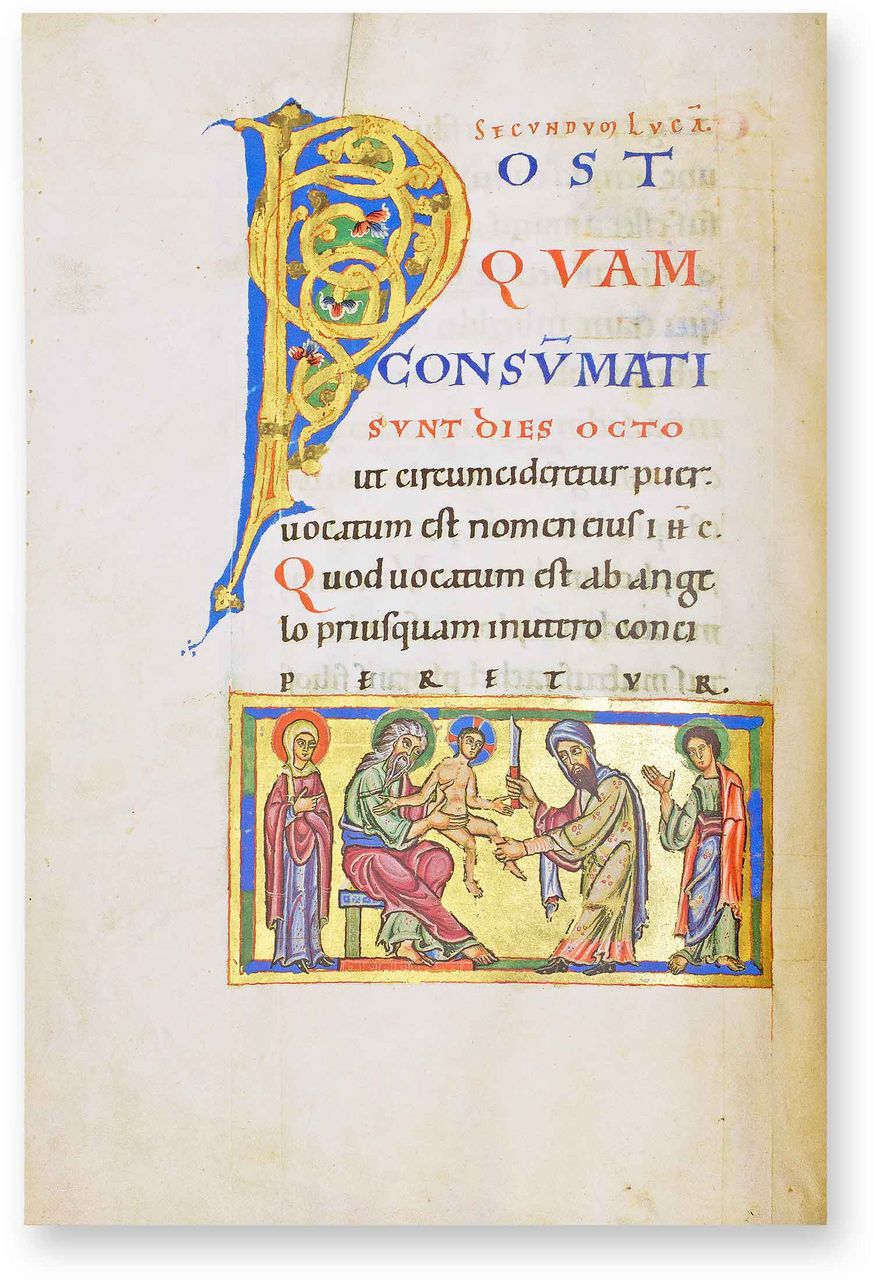 SECVNDVM LVCĀ.
POST
QVAM
CONSV̄MATI
SVNT DIES OCTO
ut circumcideretur puer.
uocatum est nomen eius IH̄C.
Quod uocatum est ab ange
lo priusquam inutero conci
PERETVR.